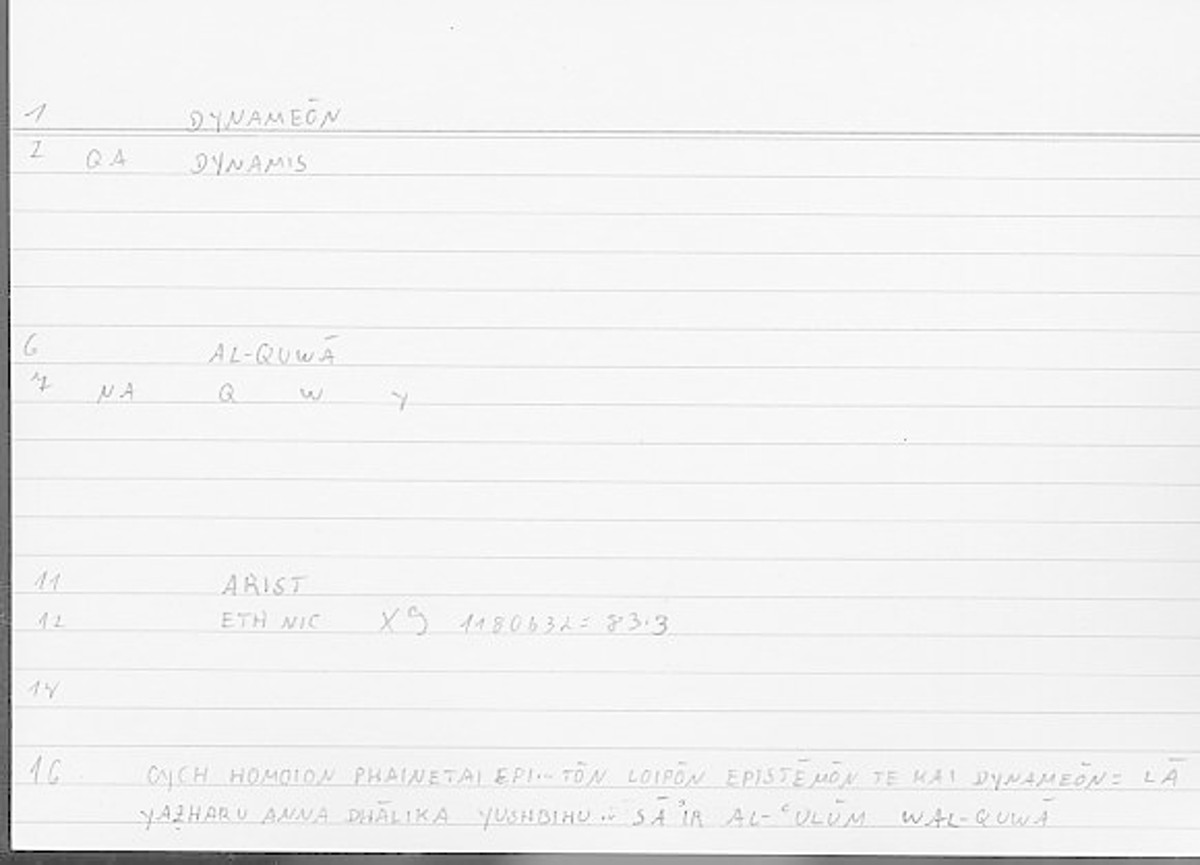 1 DYNAMEŌN
2 QA DYNAMIS
6 AL-QUWĀ
7 NA Q W Y
11 ARIST
12 ETH NIC X9 1180b32= 83.3
14
16 OYCH HOMOION PHAINETAI EPI... TŌN LOIPŌN EPISTĒMŌN TE KAI DYNAMEŌN= LĀ
YAẒHARU ANNA DHĀLIKA YUSHBIHU... SĀʾIR AL-ʿULŪM WAL-QUWĀ